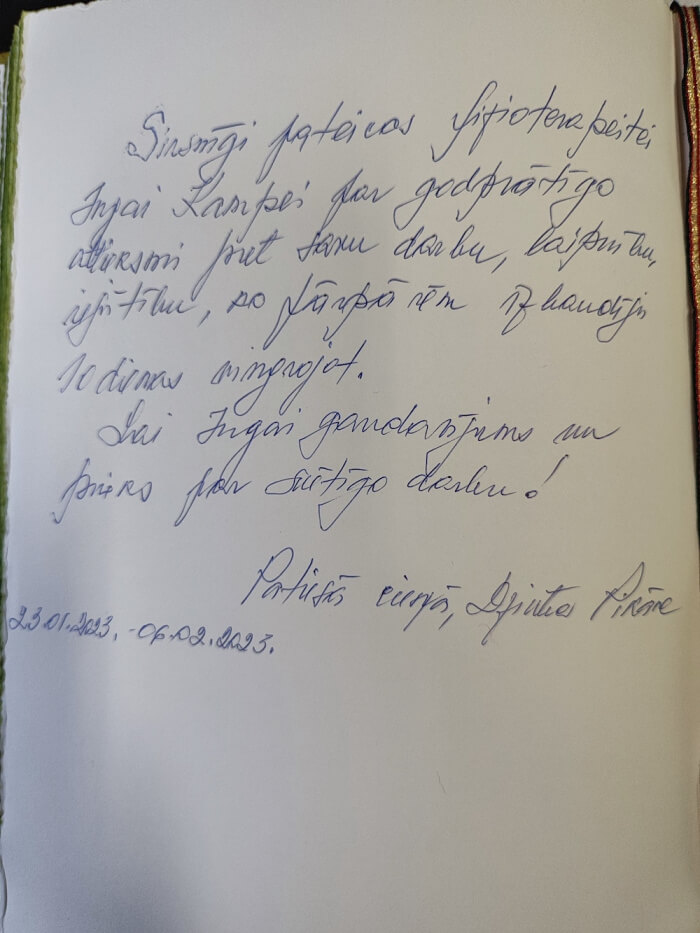 Sirsnīgi pateicos fizioterapeitei
Ingai Kampei par godprātīgo
attieksmi pret savu darbu, laipnību,
iejūtību, ko pārpārēm izbaudīju
10 dienas vingrojot.
Lai Ingai gandarījums un
prieks par svētīgo darbu!
Patiesā cieņā, Dzintra Pikāne
23.01.2023. - 06.02.2023.